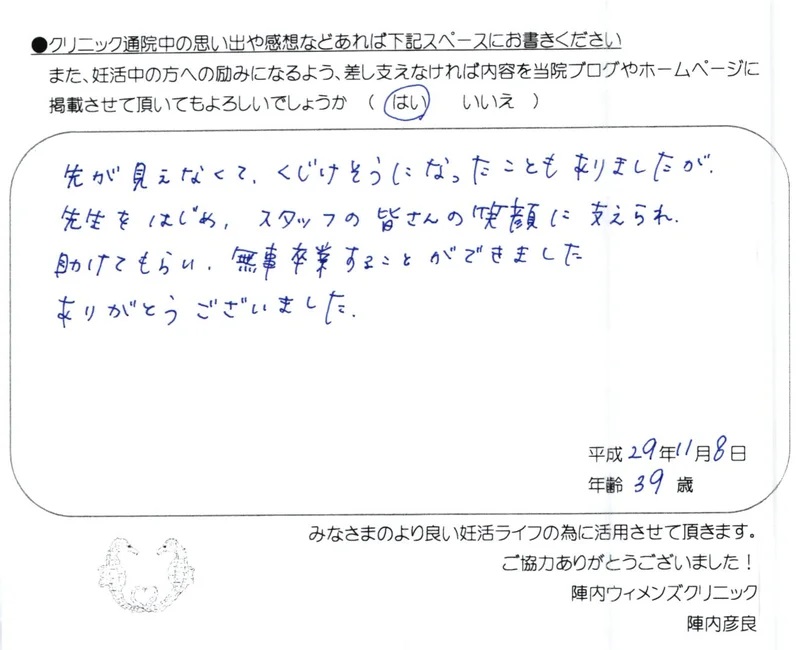 ●クリニック通院中の思い出や感想などあれば下記スペースにお書きください
また、妊活中の方への励みになるよう、差し支えなければ内容を当院ブログやホームページに
掲載させて頂いてもよろしいでしょうか （ はい　いいえ ）
先が見えなくて、くじけそうになったこともありましたが、
先生をはじめ、スタッフの皆さんの笑顔に支えられ、
助けてもらい、無事卒業することができました
ありがとうございました。
平成29年11月8日
年齢 39 歳
みなさまのより良い妊活ライフの為に活用させて頂きます。
ご協力ありがとうございました！
陣内ウィメンズクリニック
陣内彦良